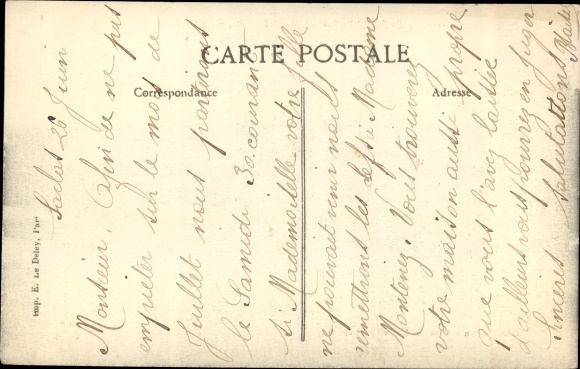 CARTE POSTALE
Correspondance
Adresse
Imp. E. Le Deley, Paris
Saclas 26 Juin
Monsieur, Afin de ne pas
empiéter sur le mois de
Juillet nous partirons
le Samedi 30 courant
si Mademoiselle votre fille
ne pouvait venir nous
remettrons les clefs à Madame
Vous trouverez
votre maison aussi propre
que vous l'avez laissée
d'ailleurs vous pourrez en juger
Sincères Salutations